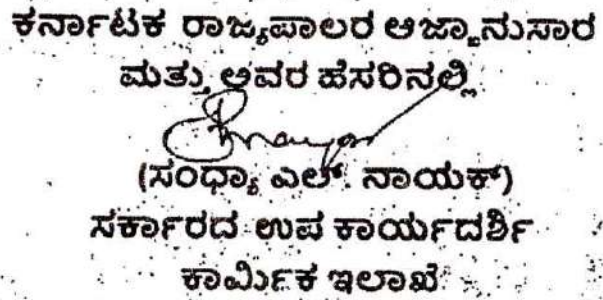 ಕರ್ನಾಟಕ ರಾಜ್ಯಪಾಲರ ಆಜ್ಞಾನುಸಾರ
ಮತ್ತು ಅವರ ಹೆಸರಿನಲ್ಲಿ
(ಸಂಧ್ಯಾ ಎಲ್. ನಾಯಕ್)
ಸರ್ಕಾರದ ಉಪ ಕಾರ್ಯದರ್ಶಿ
ಕಾರ್ಮಿಕ ಇಲಾಖೆ